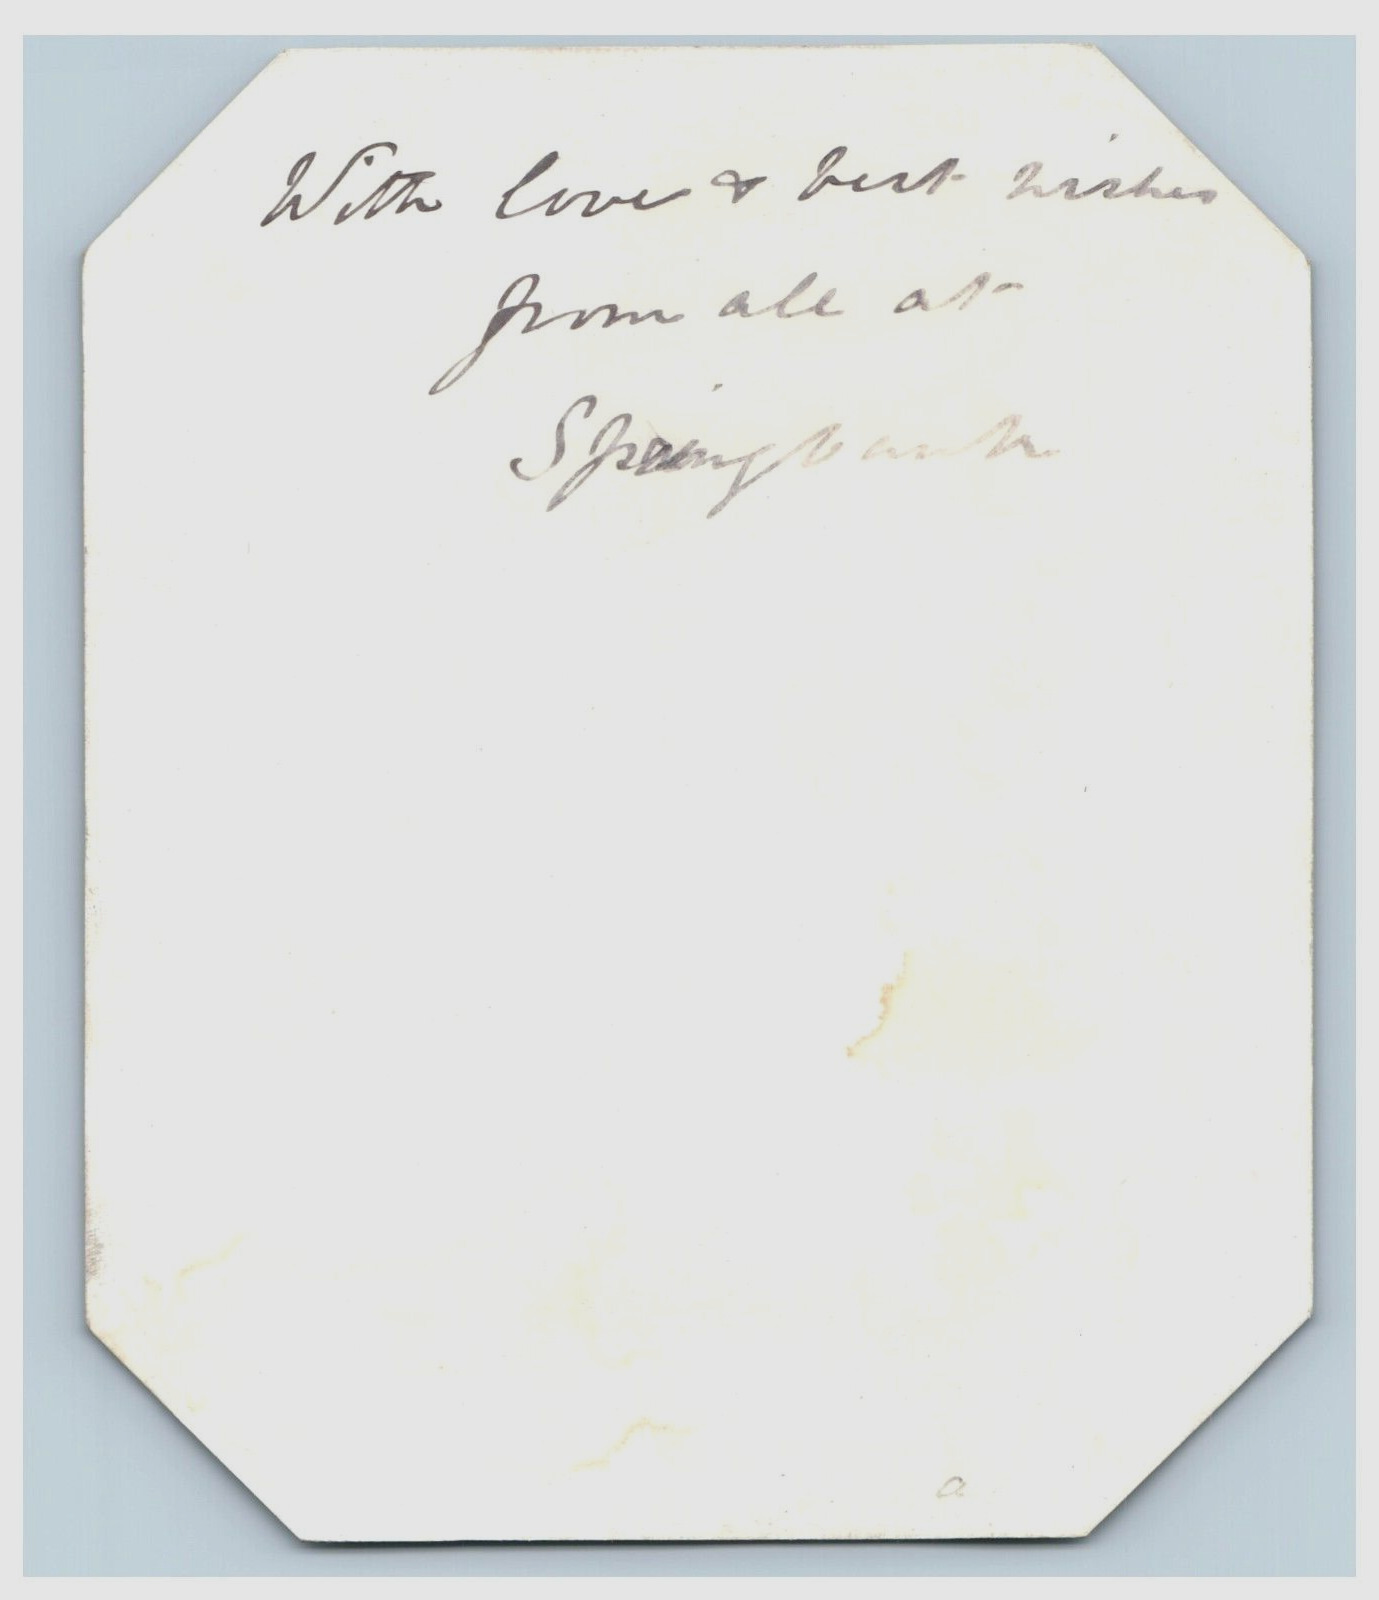 With love & best wishes
from all at
Springbank
a